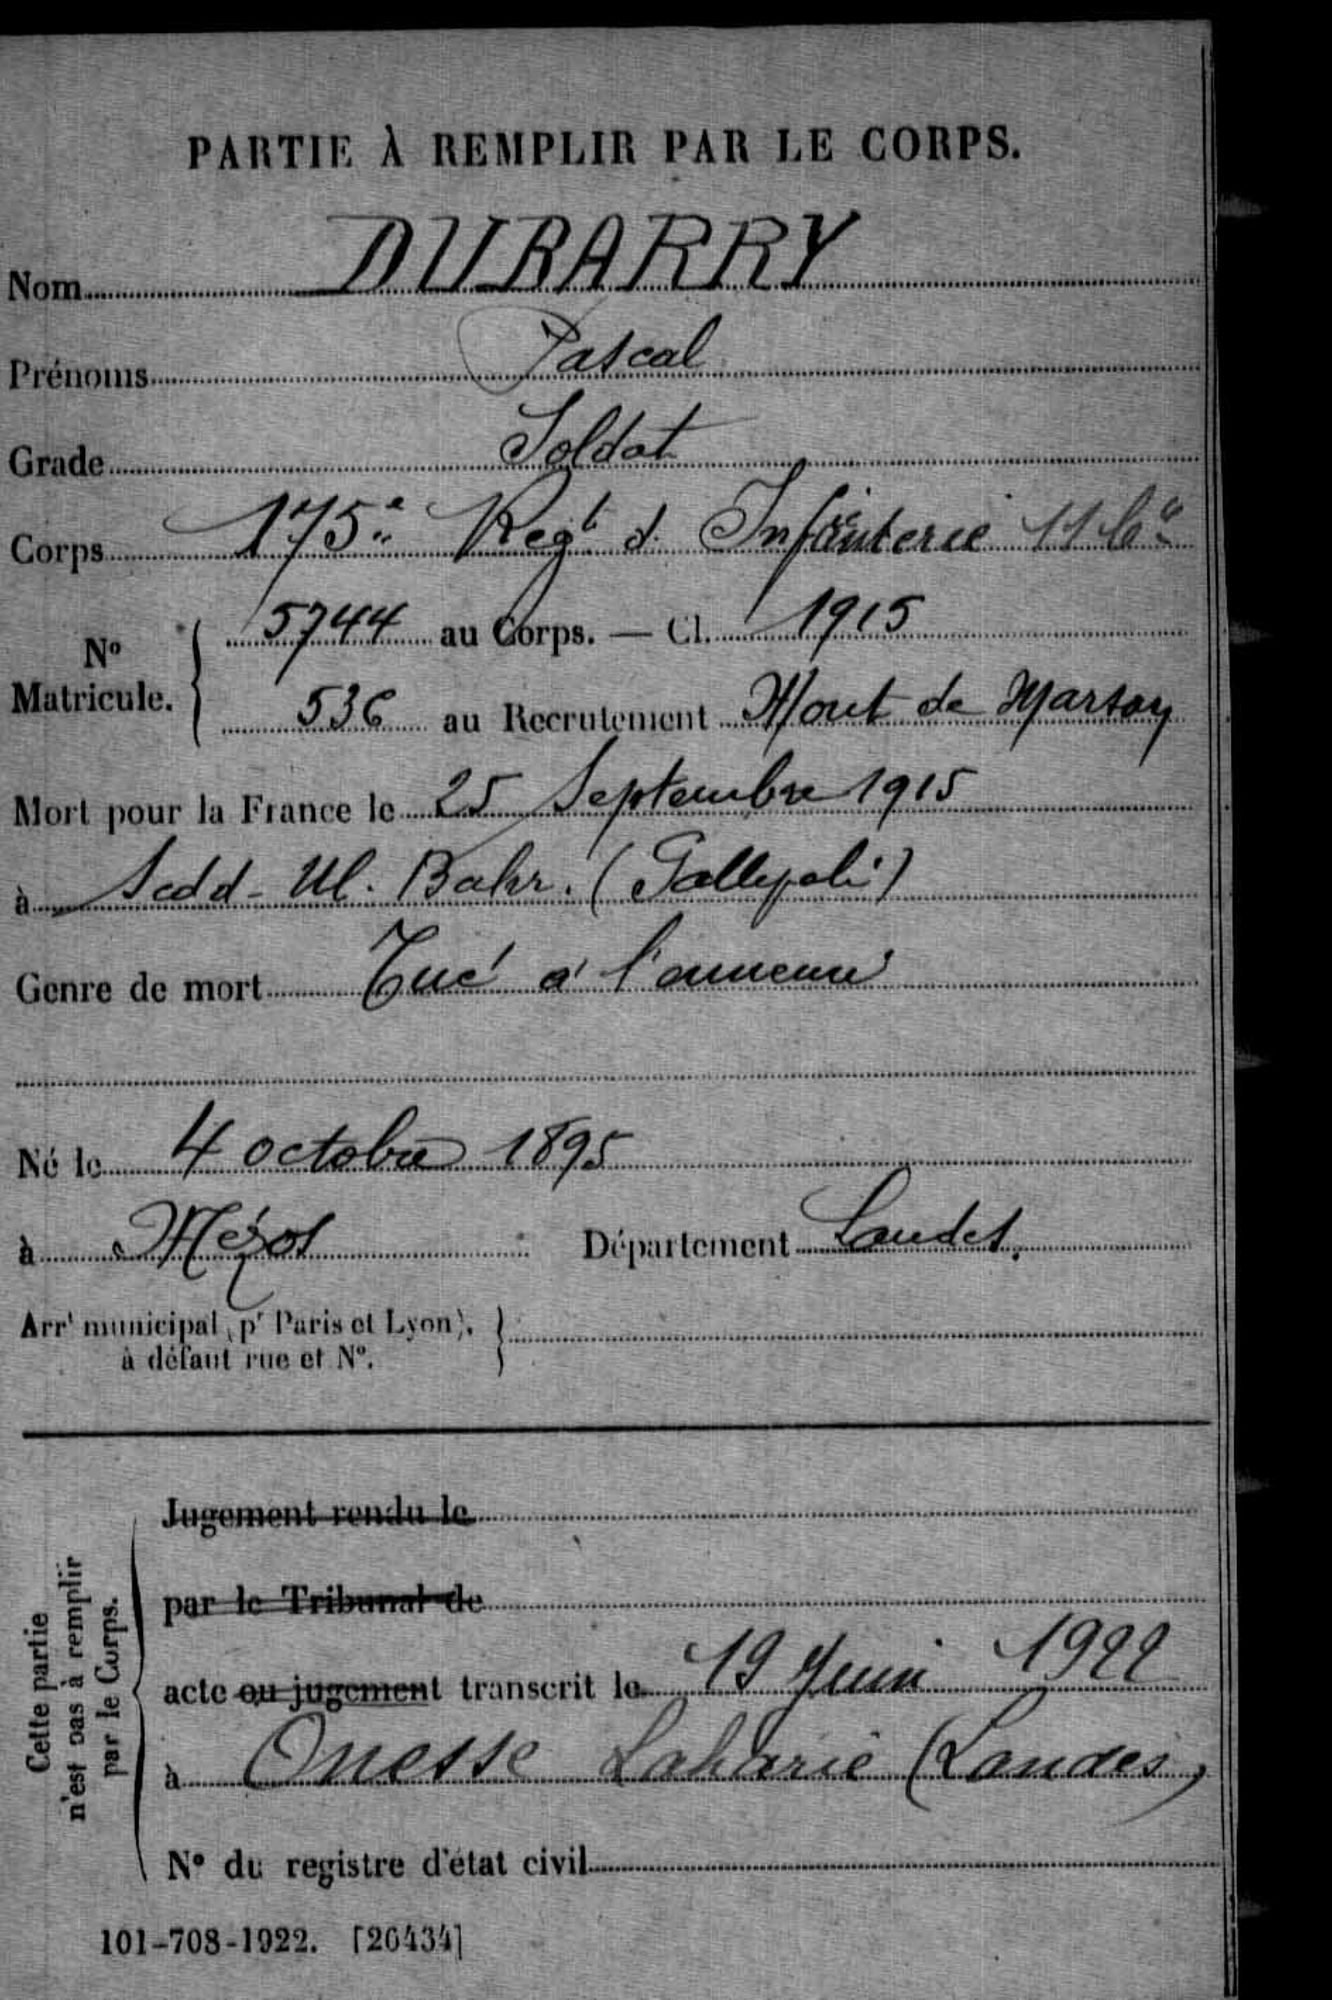 PARTIE À REMPLIR PAR LE CORPS.
Nom DUBARRY
Prénoms Pascal
Grade Soldat
Corps 175e Regt d. Infanterie 11 Cie
No Matricule. 5744 au Corps. — Cl. 1915
536 au Recrutement Mont de Marsan
Mort pour la France le 25 Septembre 1915
à Sedd-Ul. Bahr. (Gallypoli)
Genre de mort Tué à l'ennemi
Né le 4 octobre 1895
à Mézos Département Landes.
Arrt municipal (pr Paris et Lyon),
à défaut rue et No.
Cette partie
n'est pas à remplir
par le Corps.
Jugement rendu le
par le Tribunal de
acte ou jugement transcrit le 19 Juin 1922
à Onesse Laharie (Landes)
No du registre d'état civil
101-708-1922. [26434]